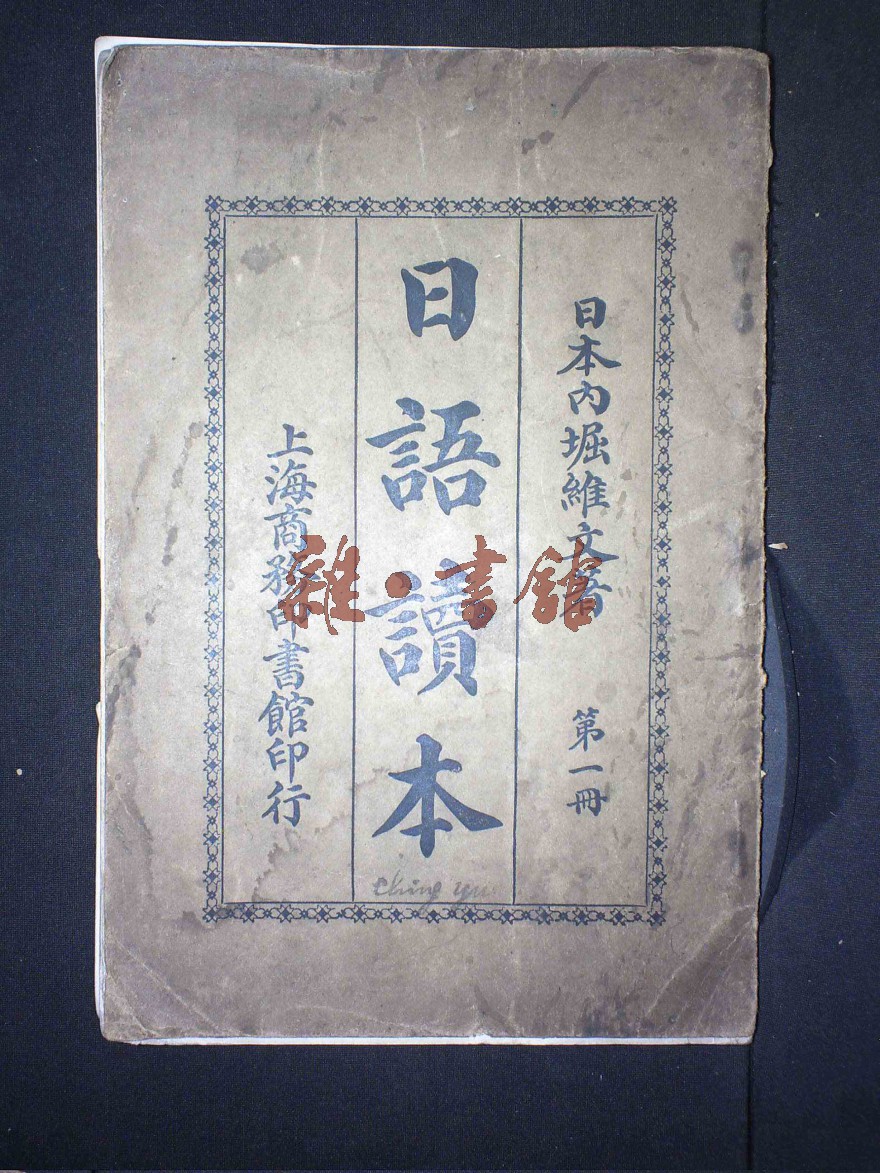 日本內堀維文著 第一冊
日語讀本
上海商務印書館印行
Ching yu
雜·書館